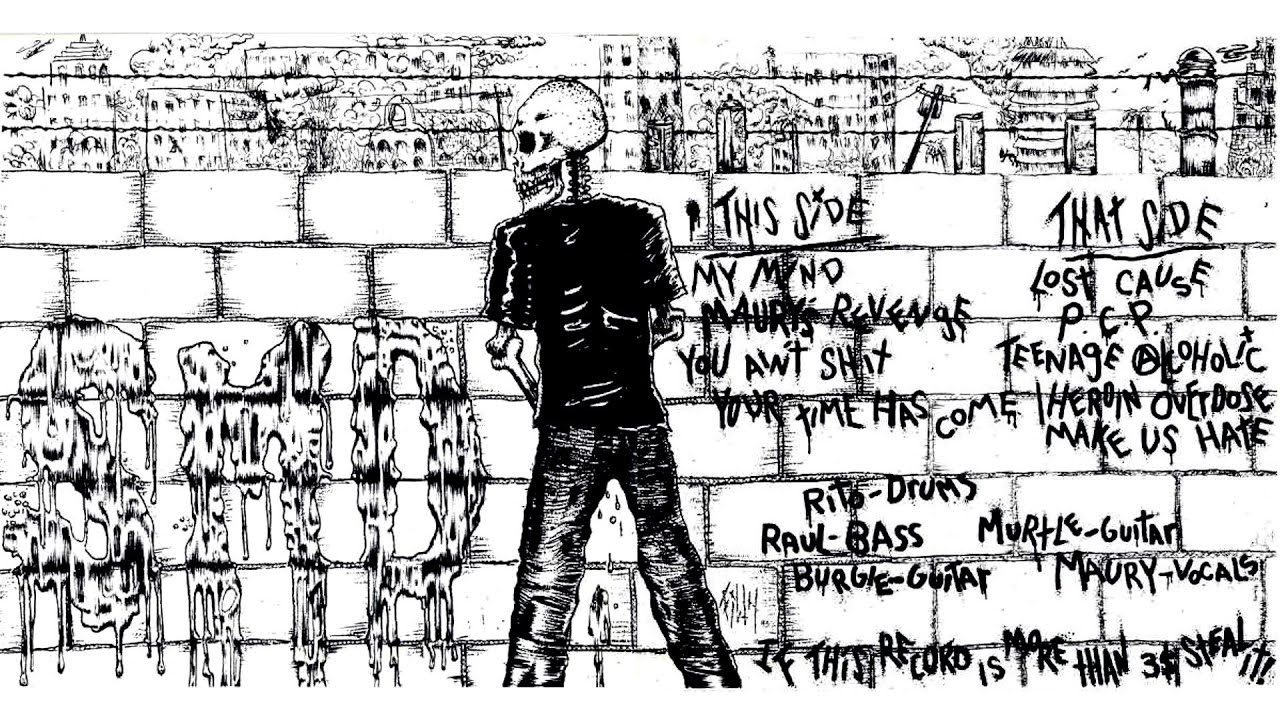 SMD
THIS SIDE
MY MIND
MAURY'S REVENGE
YOU AIN'T SHIT
YOUR TIME HAS COME
THAT SIDE
LOST CAUSE
P.C.P.
TEENAGE ALCOHOLIC
HEROIN OVERDOSE
MAKE US HATE
RITO-DRUMS
RAUL-BASS
MURTLE-GUITAR
BURGIE-GUITAR
MAURY-VOCALS
IF THIS RECORD IS MORE THAN 3$ STEAL IT!